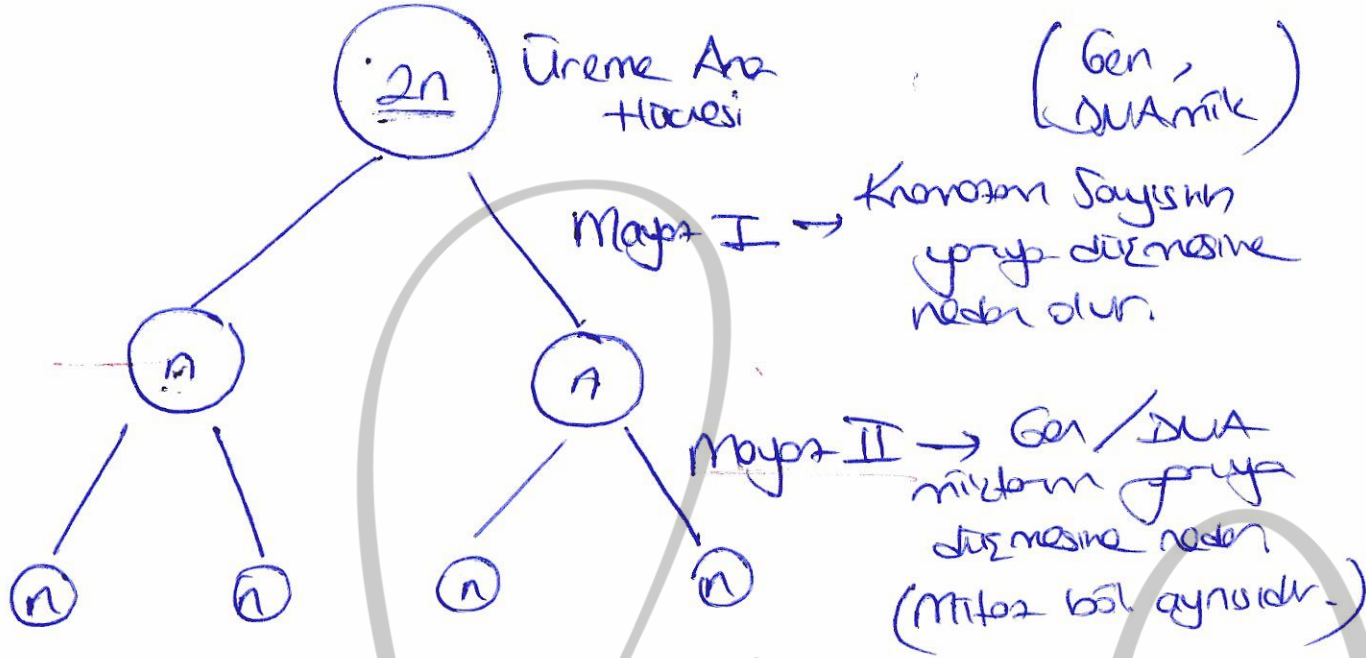 2n
Üreme Ana
Hücresi
(Gen,
DNA mik)
Mayoz I → Kromozom Sayısının
yarıya düşmesine
neden olur.
n
n
Mayoz II → Gen/DNA
miktarın yarıya
düşmesine neden
(Mitoz böl. aynısıdır.)
n
n
n
n